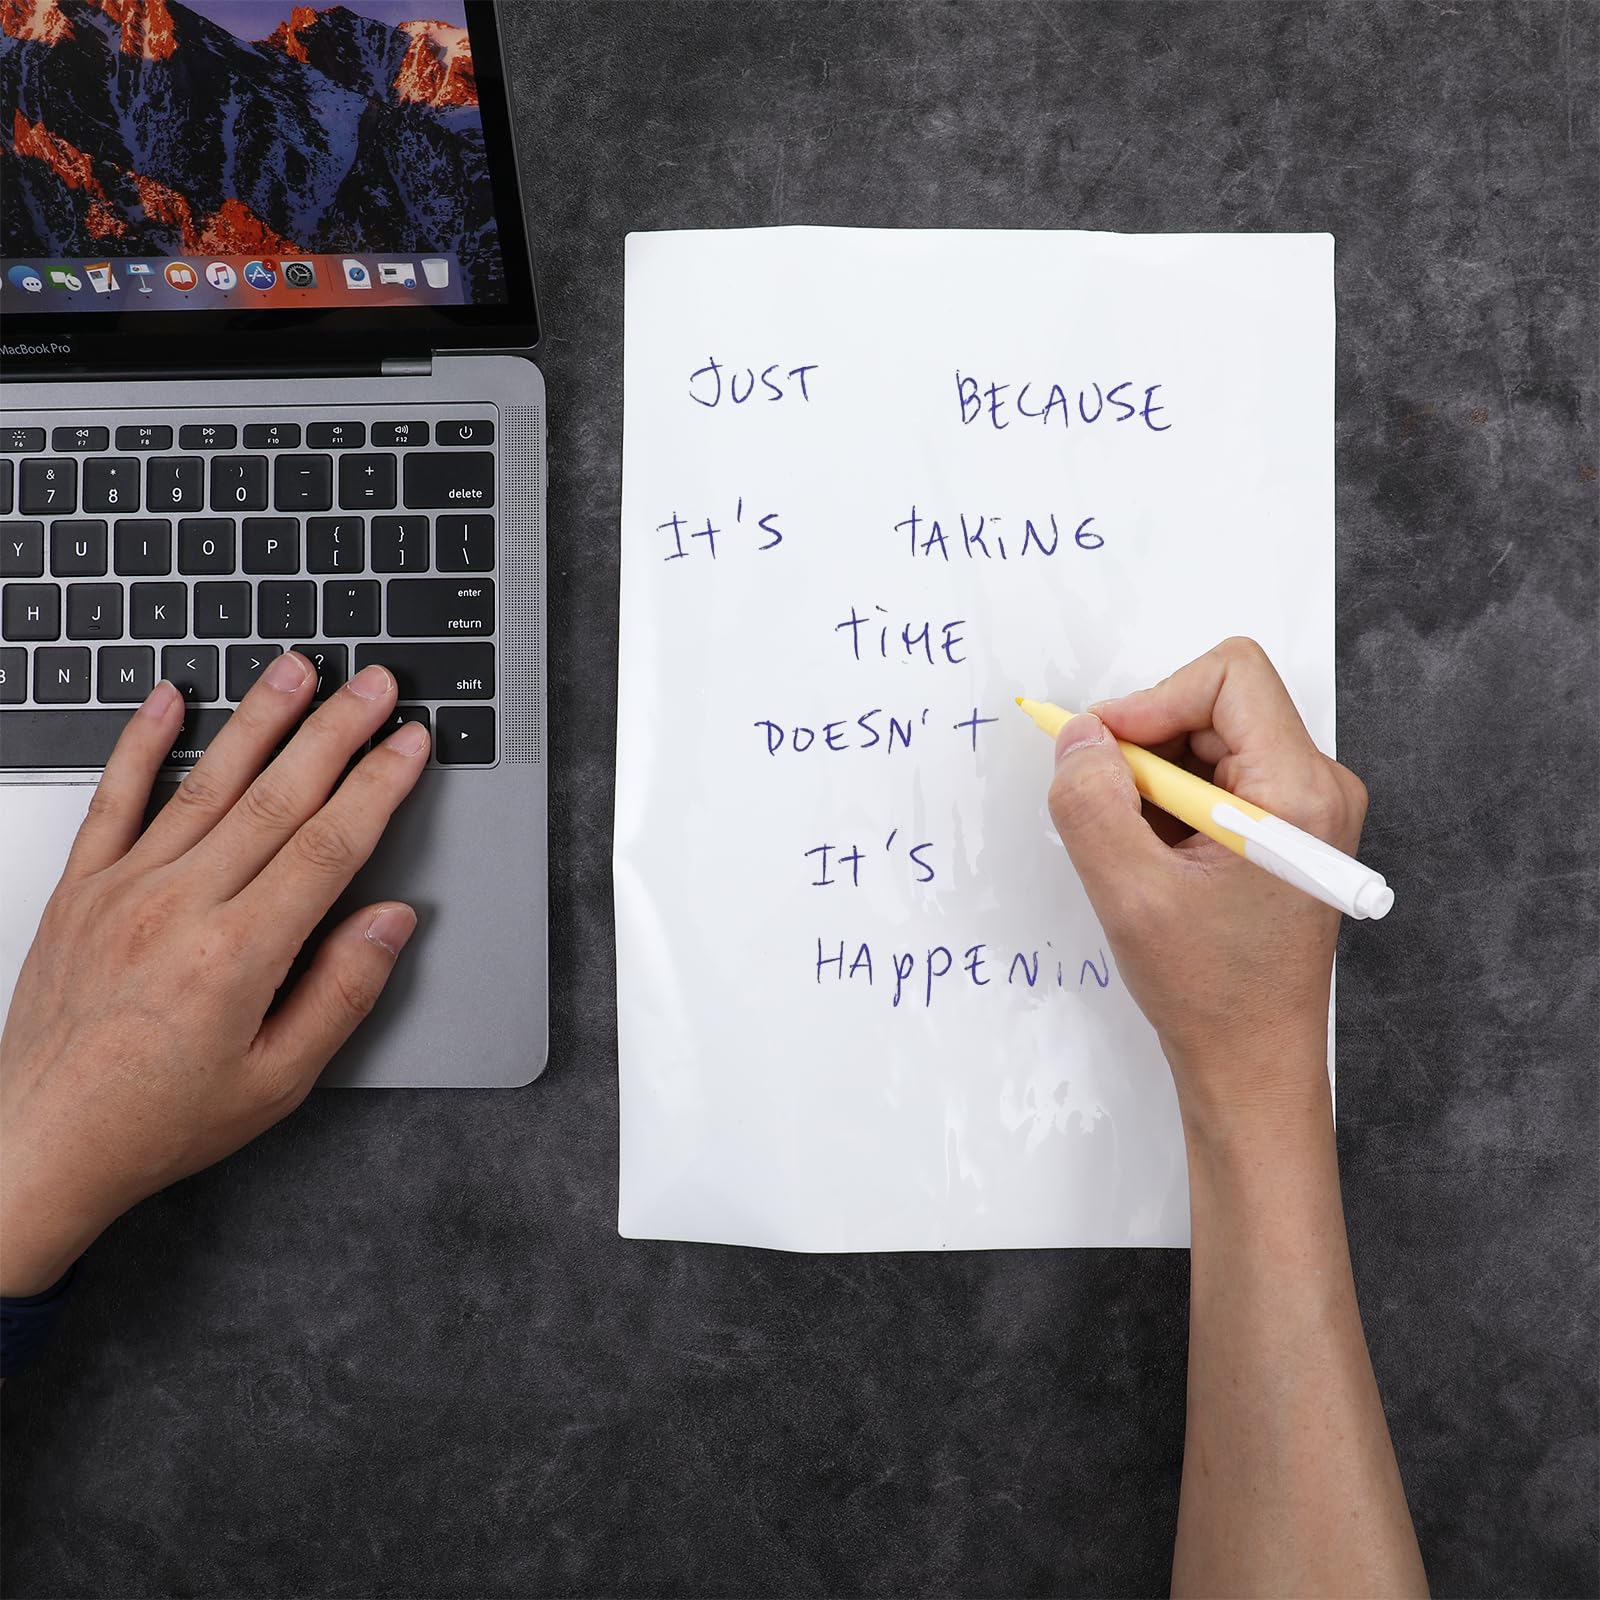 MacBook Pro
F6 F7 F8 F9 F10 F11 F12
& * ( ) _ +
7 8 9 0 - = delete
Y U I O P { [ } ] | \
H J K L : ; " ' enter return
B N M < , > ? / shift
comm
JUST BECAUSE
It's tAKiNG
tiME
DOESN't
It's
HAppENiN